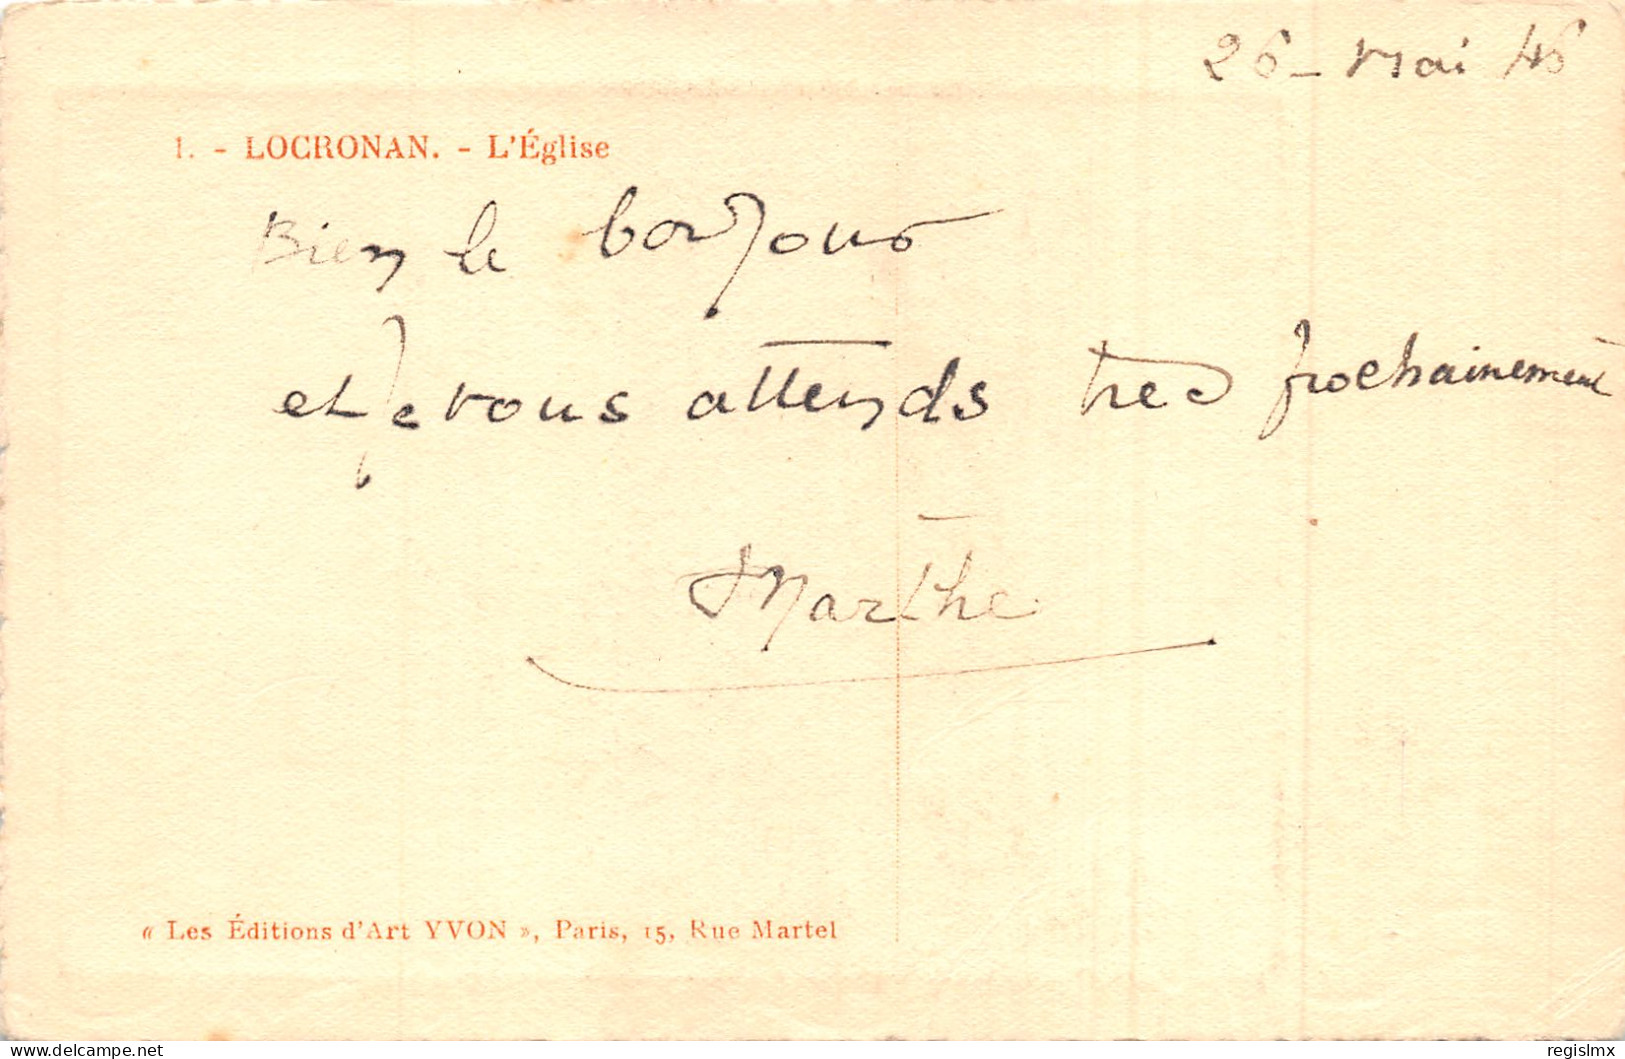 26 - Mai 46
1. - LOCRONAN. - L'Église
Bien le bonjour
et je vous attends tres prochainement
Marthe
« Les Éditions d'Art YVON », Paris, 15, Rue Martel
regislmx